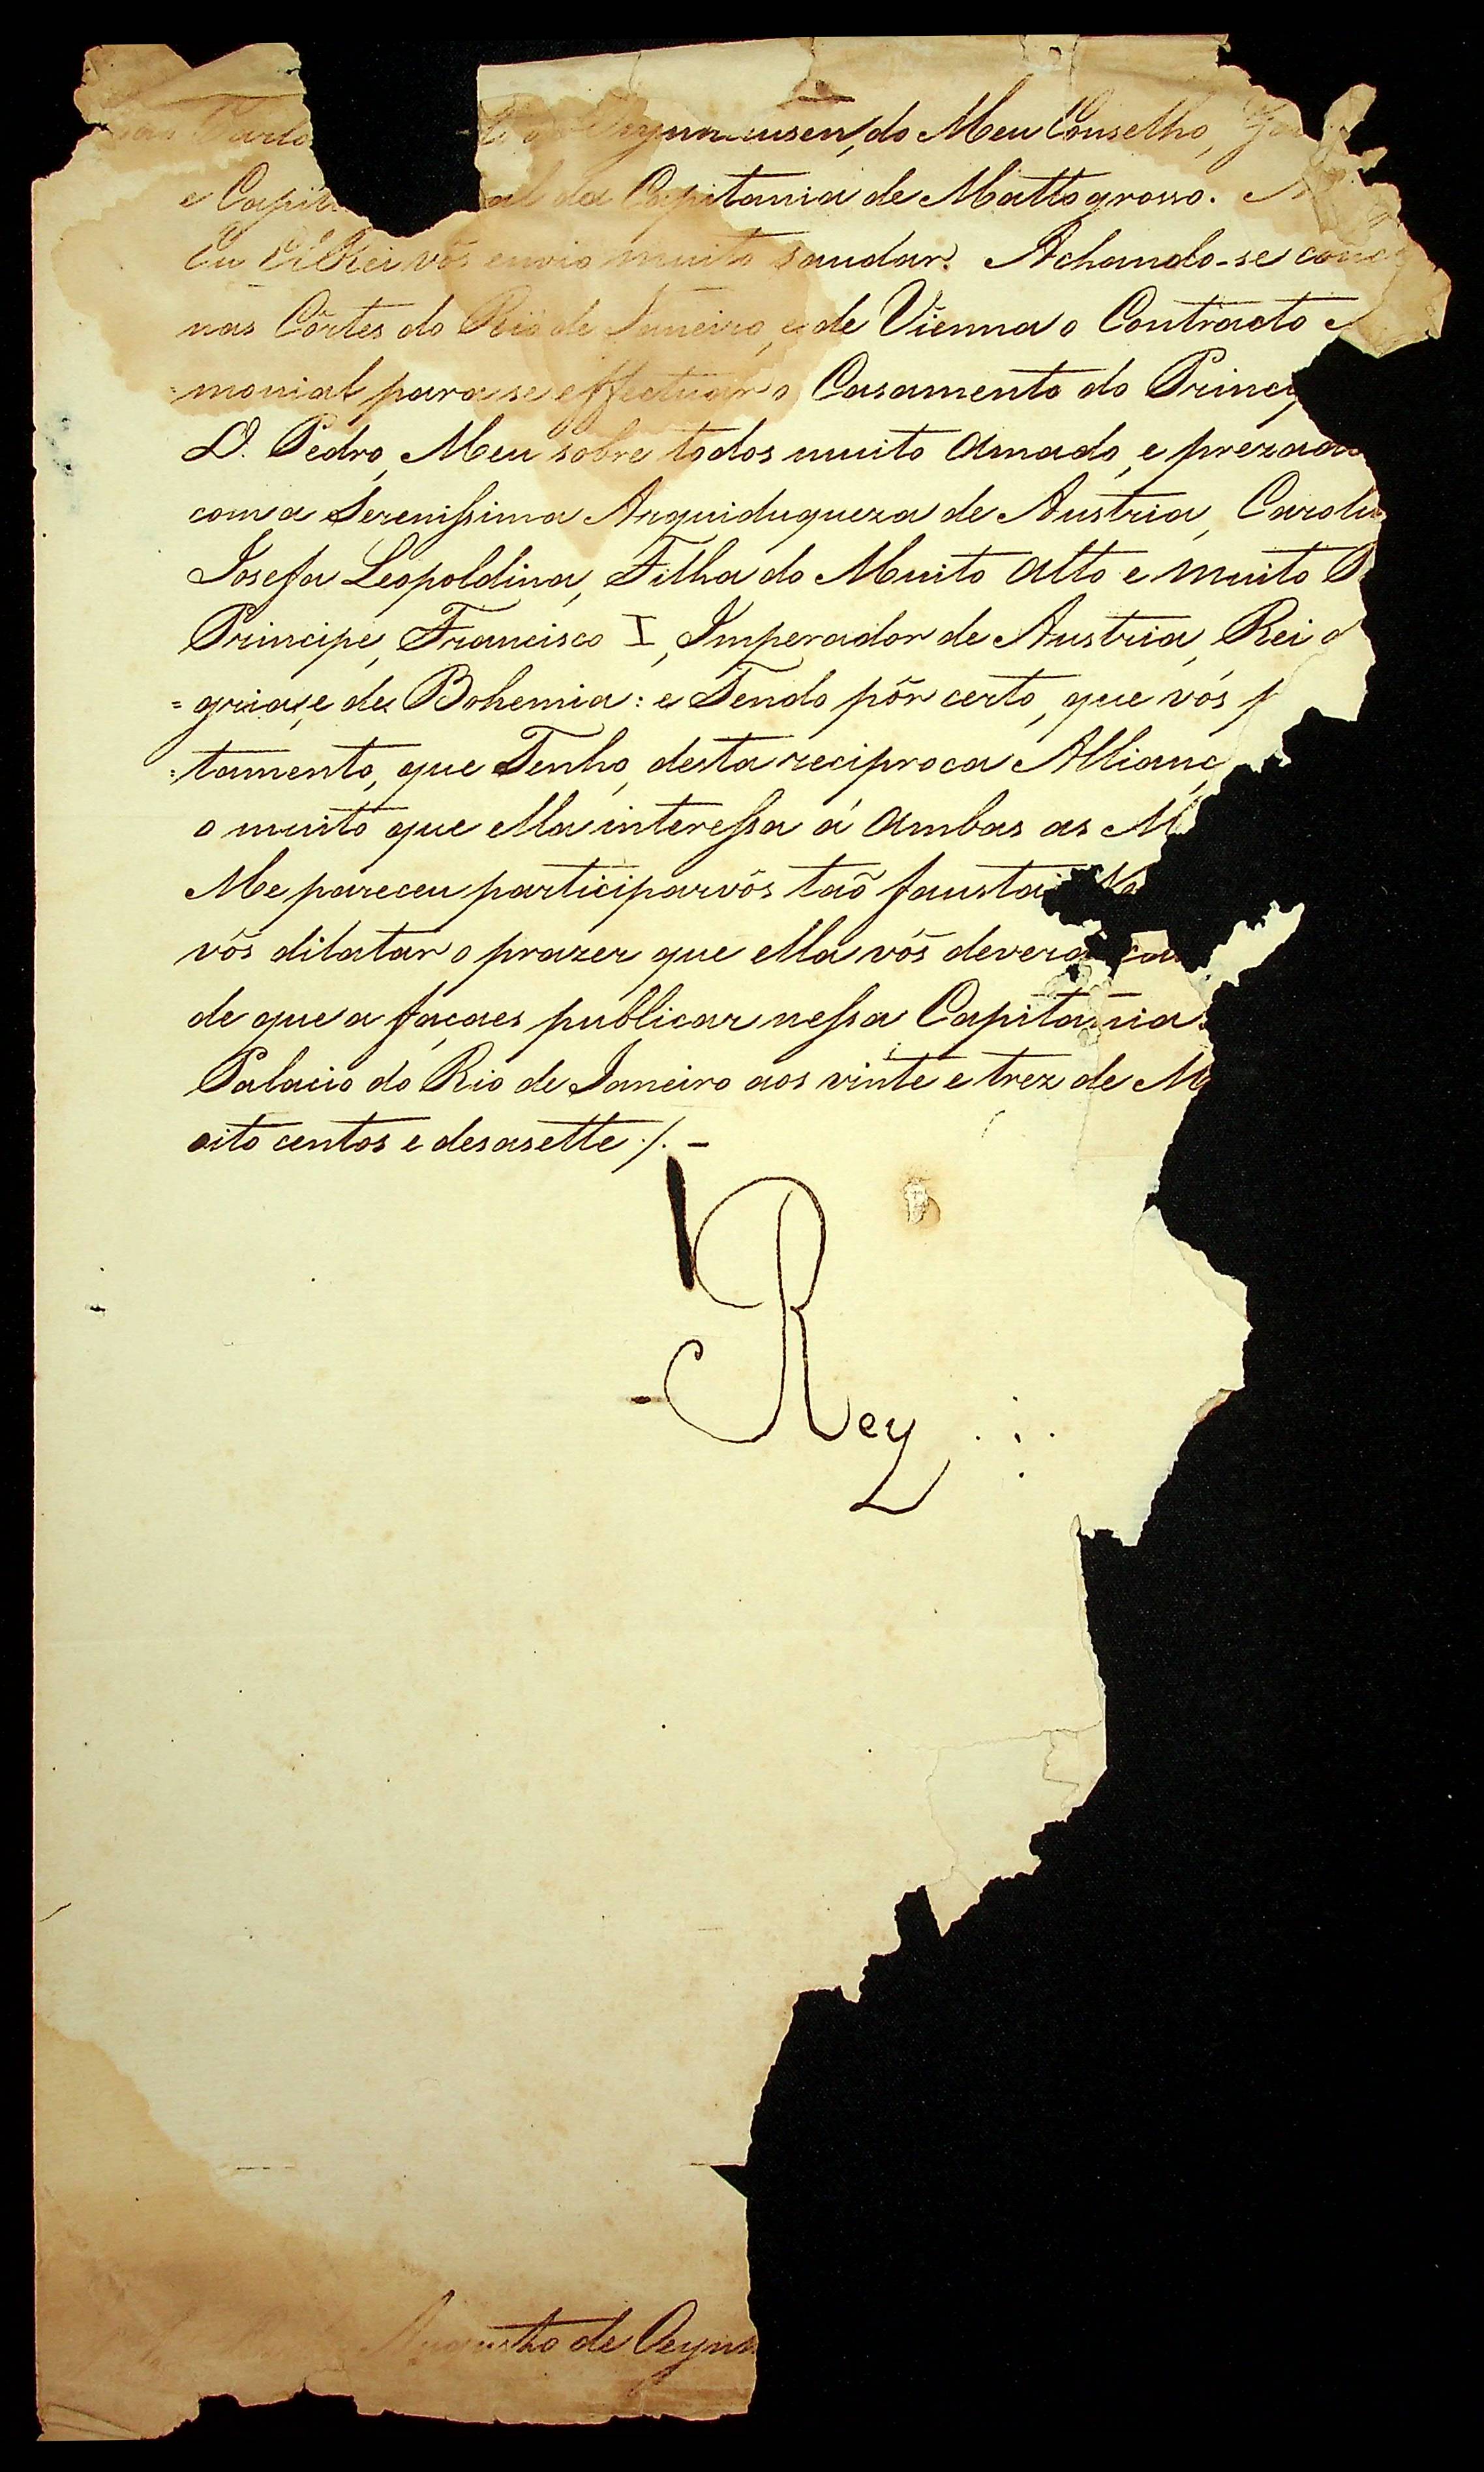 do Meu Conselho,
e da Capitania de Mattogrosso.
Eu ElRei vós envio muito saudar. Achando-se
nas Côrtes do Rio de Janeiro, e de Vienna o Contracto
=monial para se effectuar o Casamento do
D. Pedro, Meu sobre todos muito Amado, e prezado
com a Serenissima Arquiduqueza de Austria,
Josefa Leopoldina, Filha do Muito Alto e Muito
Principe, Francisco I, Imperador de Austria, Rei
=gria, e de Bohemia: e Tendo pôr certo, que vós
=tamento, que Tenho, desta reciproca
o muito que ella interessa á Ambas as
Me pareceu participarvós taõ fausta
vós dilatar o prazer que ella vós
de que a façaes publicar nessa Capitania
Palacio do Rio de Janeiro aos vinte e trez de
oito centos e desasette ./. -
Rey
Augusto de